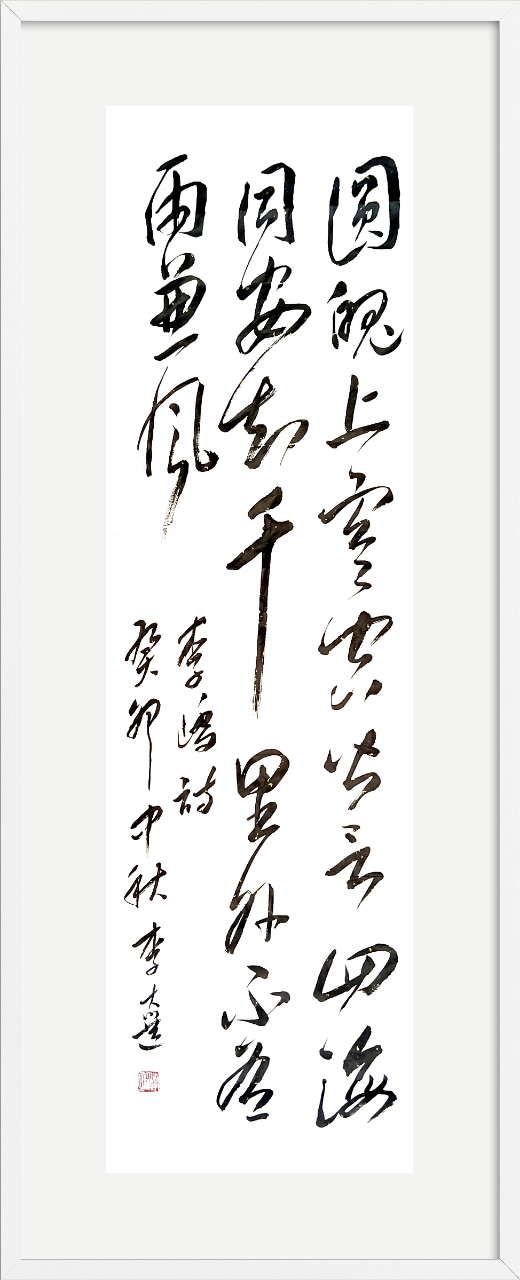 圓魄上寒空皆言四海
同安知千里外不有
雨兼風
李嶠詩
癸卯中秋李大